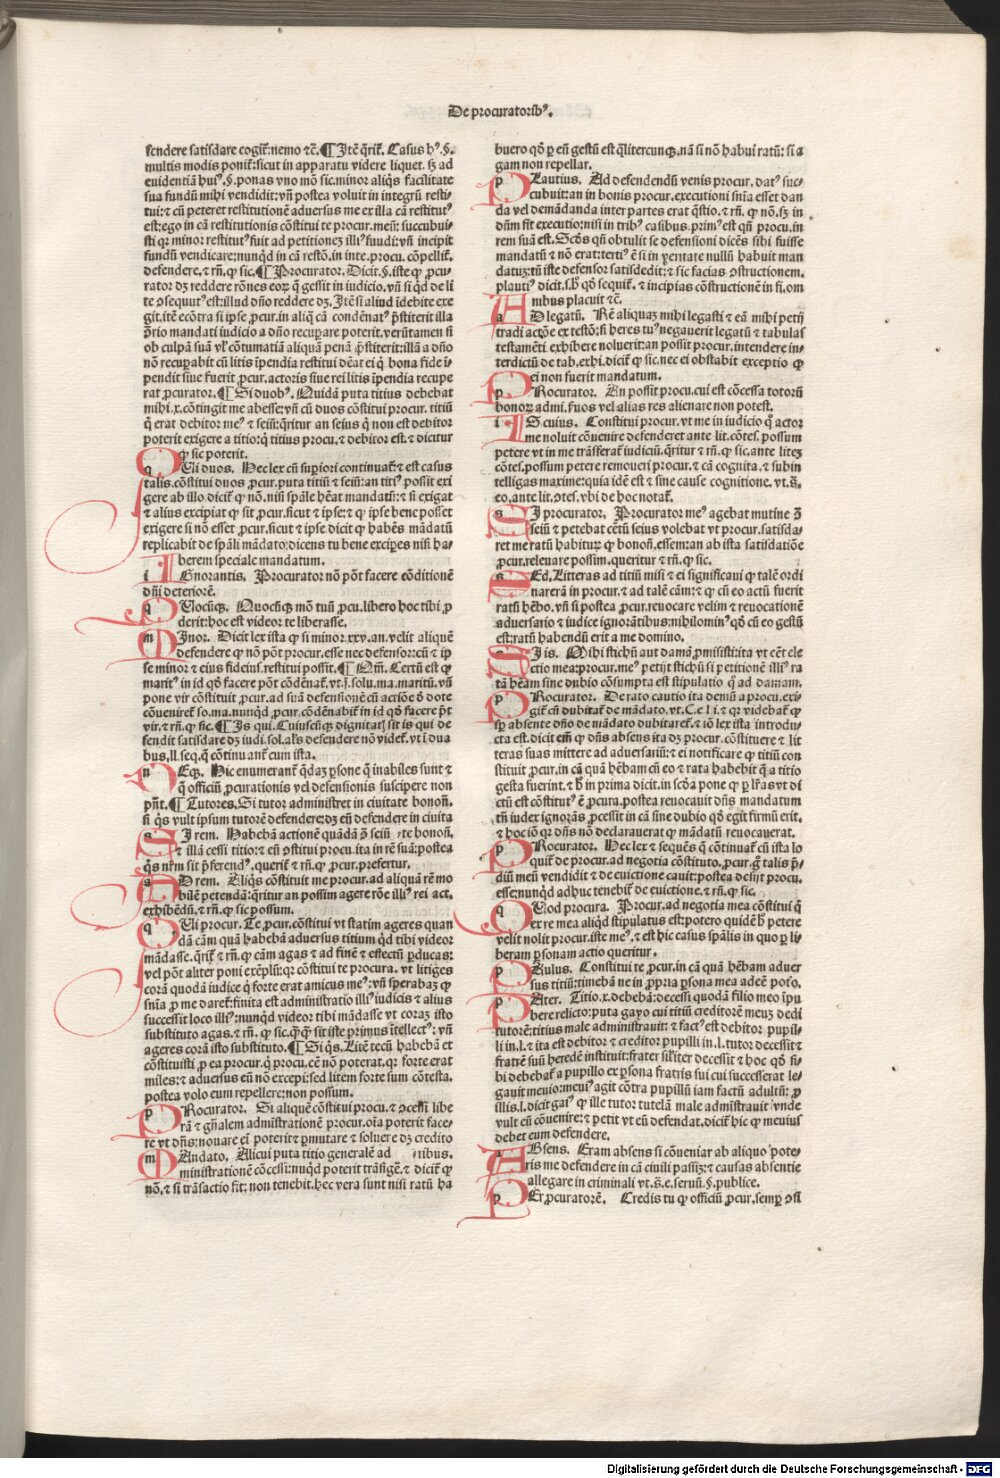 De procuratoribꝰ.
fendere satisdare cogit̃: nemo ⁊c̃. ¶ Itẽ q̃rit̃. Casus hꝰ.§.
multis modis ponit̃: sicut in apparatu videre liquet. sꝫ ad
euidentiã huiꝰ.§. ponas vno mõ sic. minor aliq̃s facilitate
sua fundũ mihi vendidit: vñ postea voluit in integrũ resti-
tui: ⁊ cũ peteret restitutionẽ aduersus me ex illa cã restitutꝰ
est: ego in cã restitutionis cõstitui te procur. meũ: succubui-
sti qꝛ minor restitutꝰ fuit ad petitionez illiꝰ fundi: vñ incipit
fundũ vendicare: nunq̃d in cã restõ. in inte. procu. cõpellit̃.
defendere. ⁊ rñ. ꝙ sic. ¶ Procurator. Dicit.§. iste ꝙ ꝓcu-
rator dꝫ reddere rõnes eoꝝ q̃ gessit in iudicio. vñ si qd̃ de li
te ꝯsequutꝰ est: illud dño reddere dꝫ. Itẽ si aliud ĩdebite exe
git. itẽ ecõtra si ipse ꝓcur. in aliq̃ cã condẽnatꝰ p̃stiterit illa
ꝯrio mandati iudicio a dño recuꝑare poterit. verũtamen si
ob culpã suã vl̓ cõtumatiã aliquã penã p̃stiterit: illã a dño
nõ recuꝑabit cũ litis ĩpendia restitui deãt ei q̃ bona fide ĩ-
pendit siue fuerit ꝓcur. actoris siue rei litis ĩpendia recupe
rat ꝓcurator. ¶ Si duobꝰ. Quidã puta titius debebat
mihi.x. cõtingit me abesse: vñ cũ duos cõstitui procur. titiũ
q̃ erat debitor meꝰ ⁊ seiũ: q̃ritur an seius q̃ non est debitor
poterit exigere a titio: q̃ titius procu. ⁊ debitor est. ⁊ dicitur
ꝙ sic poterit.
q Ui duos. Hec lex cũ supiori continuat̃: ⁊ est casus
talis. cõstitui duos ꝓcur. puta titiũ ⁊ seiũ: an titiꝰ possit exi
gere ab illo. dicit̃ ꝙ nõ. nisi sp̃ale hẽat mandatũ: ⁊ si exigat
⁊ alius excipiat ꝙ sit ꝓcur. sicut ⁊ ipse: ⁊ ꝙ ipse bene posset
exigere si nõ esset ꝓcur. sicut ⁊ ipse dicit ꝙ habẽs mãdatũ
replicabit de sp̃ali mãdato: dicens tu bene excipes nisi ha-
berem speciale mandatum.
i Gnorantis. Procurator nõ põt facere cõditionẽ
dñi deteriorẽ.
q Uocũꝙ. Quocũꝙ mõ tuũ ꝓcu. libero hoc tibi ꝓ
derit: hoc est videor te liberasse.
m Inor. Dicit lex ista ꝙ si minor.xxv. an. velit aliquẽ
defendere ꝙ nõ põt procur. esse nec defensor: cũ ⁊ ip
se minor ⁊ eius fideius. restitui possit. ¶ Oĩn. Certũ est ꝙ
maritꝰ in id qd̃ facere põt cõdẽnat̃. vt.s. solu. ma. maritũ. vñ
pone vir cõstituit ꝓcur. ad suã defensionẽ cũ actiõe õ dote
cõueniret̃ so. ma. nunq̃d ꝓcur. cõdẽnabit̃ in id qd̃ facere p̃t
vir. ⁊ rñ. ꝙ sic. ¶ Is qui. Cuiuscũꝙ dignitati̓ sit is qui de
fendit satisdare dꝫ iudi. sol. al̓s defendere nõ videt̃. vt ĩ dua
bus.ll. seq. q̃ cõtinu ant̃ cum ista.
n Eꝙ. Hic enumerant̃ q̃daz ꝑsone q̃ inabiles sunt ⁊
q̃ officiũ ꝓcurationis vel defensionis suscipere non
pñt. ¶ Tutores. Si tutor administret in ciuitate honoñ.
si q̃s vult ipsum tutorẽ defendere: dꝫ eũ defendere in ciuita
s I rem. Habebã actionẽ quãdã ꝯ̃ seiũ te honoñ.
⁊ illã cessi titio: ⁊ cũ ꝯstitui procu. ita in rẽ suã: postea
q̃s nr̃m sit p̃ferendꝰ. querit̃ ⁊ rñ. ꝙ ꝓcur. prefertur.
a D rem. Aliq̃s cõstituit me procur. ad aliquã rẽ mo
bilẽ petendã: q̃ritur an possim agere rõe illiꝰ rei act.
exhibẽdũ. ⁊ rñ. ꝙ sic possum.
q Ui procur. Te ꝓcur. cõstitui vt statim ageres quan
dã cãm quã habebã aduersus titium q̃d tibi videor
mãdasse. q̃rit̃ ⁊ rñ. ꝙ cãm agas ⁊ ad finẽ ⁊ effectũ ꝑducas:
vel põt aliter poni exẽplũ: qꝛ cõstitui te procura. vt litiges
corã quodã iudice q̃ forte erat amicus meꝰ: vñ sperabaz ꝙ
snĩa ꝓ me daret̃: finita est administratio illiꝰ iudicis ⁊ alius
successit loco illiꝰ: nunq̃d videor tibi mãdasse vt coraz isto
substituto agas. ⁊ rñ. ꝙ sic. q̃ꝙ̃ sit iste primus ĩtellectꝰ: vñ
ageres corã isto substituto. ¶ Si q̃s. Litẽ tecũ habebã et
cõstituisti ꝓ ea procur. q̃ procu. eẽ nõ poterat. qꝛ forte erat
miles: ⁊ aduersus eũ nõ excepi: sed litem forte sum cõtesta.
postea volo eum repellere: non possum.
p Rocurator. Si aliquẽ cõstitui procu. ⁊ ꝯcessi libe
rã ⁊ gñalem admistrationẽ procur. oĩa poterit face-
re vt dñs: nouare em̃ poterit ⁊ ꝑmutare ⁊ soluere dꝫ credito
m Andato. Alicui puta titio generalẽ ad nibus.
ministrationẽ cõcessi: nuq̃d poterit trãsigẽ. ⁊ dicit̃ ꝙ
nõ. ⁊ si trãsactio fit: non tenebit. hec vera sunt nisi ratũ ha
buero qd̃ ꝑ eũ gestũ est q̃litercunꝙ. nã si nõ habui ratũ: si a
gam non repellar.
p Lautius. Ad defendendũ venis procur. datꝰ suc-
cubuit: an in bonis procur. executioni snĩa esset dan
da vel demãdanda inter partes erat q̃stio. ⁊ rñ. ꝙ nõ. sꝫ in
dñm fit executio: nisi in tribꝰ casibus. primꝰ est qñ procu. in
rem suã est. Scd̃s qñ obtulit se defensioni dicẽs sibi fuisse
mandatũ ⁊ nõ erat: tertiꝰ ẽ si in ꝟentate nullũ habuit man
datuz: tñ iste defensor satisdedit: ⁊ sic facias ꝯstructionem.
plautiꝰ dicit. s. h̓ qd̃ sequit̃. ⁊ incipias cõstructionẽ in fi. om
nibus placuit ⁊c̃.
a D legatũ. Rẽ aliquaz mihi legasti ⁊ eã mihi petij
tradi actiõe ex testõ: si heres tuꝰ negauerit legatũ ⁊ tabulas
testamẽti exhibere noluerit: an possit procur. intendere in-
terdictũ de tab. exhi. dicit̃ ꝙ sic. nec ei obstabit exceptio ꝙ
ei non fuerit mandatum.
p Rocurator. An possit procu. cui est cõcessa totorũ
bonoꝝ admi. fuos vel alias res alienare non potest.
i S cuius. Constitui procur. vt me in iudicio q̃ actor
me noluit cõuenire defenderet ante lit. cõtes. possum
petere vt in me trãsferat̃ iudiciũ. q̃ritur ⁊ rñ. ꝙ sic. ante litez
cõtes. possum petere remoueri procur. ⁊ cã cognita. ⁊ subin
telligas maxime: quia idẽ est ⁊ sine cause cognitione. vt.s̃.
eo. ante lit. ꝯtes. vbi de hoc notat̃.
s I procurator. Procurator meꝰ agebat mutine ꝯ̃
seiũ ⁊ petebat cẽtũ seius volebat vt procur. satisda-
ret me ratũ habiturꝫ ꝙ bonoñ. essem: an ab ista satisdatiõe
ꝓcur. releuare possim. queritur ⁊ rñ. ꝙ sic.
s Ed. Litteras ad titiũ misi ⁊ ei significaui ꝙ talẽ ordi
narerã in procur. ⁊ ad talẽ cãm: ⁊ ꝙ cũ eo actũ fuerit
ratũ hẽbo. vñ si postea ꝓcur. reuocare velim ⁊ reuocationẽ
aduersario ⁊ iudice ignorãtibus: nihilominꝰ qd̃ cũ eo gestũ
est: ratũ habendũ erit a me domino.
s I is. Mihi stichũ aut damã ꝓmisisti: ita vt eẽt ele
ctio mea: procur. meꝰ petijt stichũ si petitionẽ illiꝰ ra
tã hẽam sine dubio cõsumpta est stipulatio q̃ ad damam.
p Rocurator. De rato cautio ita demũ a procu. exi-
git̃ cũ dubitat̃ de mãdato. vt. C. e l i. ⁊ qꝛ videbat̃ ꝙ
sp̃ absente dño de mãdato dubitaret̃. ⁊ iõ lex ista introdu-
cta est. dicit em̃ ꝙ dñs absens ita dꝫ procur. cõstituere ⁊ lit
teras suas mittere ad aduersariũ: ⁊ ei notificare ꝙ titiũ con
stituit ꝓcur. in cã quã hẽbam cũ eo ⁊ rata habebit q̃ a titio
gesta fuerint. ⁊ h̓ in prima dicit. in scd̃a pone ꝙ ꝑ lr̃as vt di
ctũ est cõstitutꝰ ẽ ꝓcura. postea reuocauit dñs mandatum
tñ iudex ignorãs ꝓcessit in cã sine dubio qd̃ egit firmũ erit.
⁊ hoc iõ qꝛ dñs nõ declarauerat ꝙ mãdatũ reuocauerat.
p Rocurator. Hec lex ⁊ sequẽs q̃ cõtinuat̃ cũ ista lo
quit̃ de procur. ad negotia cõstituto. ꝓcur. g̃ talis p̃-
diũ meũ vendidit ⁊ de euictione cauit: postea desijt procu.
esse: nunq̃d adhuc tenebit̃ de euictione. ⁊ rñ. ꝙ sic.
q Uod procura. Procur. ad negotia mea cõstitui q̃
ex re mea aliq̃d stipulatus est: potero quidẽ h̓ petere
velit nolit procur. iste meꝰ. ⁊ est hic casus sp̃alis in quo ꝑ li
beram ꝑsonam actio queritur.
p Aulus. Constitui te ꝓcur. in cã quã hẽbam aduer
sus titiũ: timebã ne in ꝓpria ꝑsona mea adeẽ poto.
p Ater. Titio.x. debebã: decessi quodã filio meo ĩpu
bere relicto: puta gayo cui titiũ creditorẽ meuz dedi
tutorẽ: titius male administrauit: ⁊ factꝰ est debitor pupil-
li in.l. ⁊ ita est debitor ⁊ creditor pupilli in.l. tutor decessit ⁊
fratrẽ suũ heredẽ instituit: frater sil̓iter decessit ⁊ hoc qd̃ si-
bi debebat̃ a pupillo ex ꝑsona fratris sui cui successerat le-
gauit meuio: meuiꝰ agit cõtra pupillũ iam factũ adultũ: ꝓ
illis.l. dicit gaiꝰ ꝙ ille tutor tutelã male admĩstrauit: vnde
vult eũ cõuenire: ⁊ petit vt eũ defendat. dicit̃ hic ꝙ meuius
debet eum defendere.
A Bsens. Eram absens si cõueniar ab aliquo pote-
ris me defendere in cã ciuili passiz: ⁊ causas absentie
allegare in criminali vt.s̃. e. seruũ.§. publice.
p Er ꝓcuratorẽ. Credis tu ꝙ officiũ ꝓcur. semꝑ ꝯsi
Digitalisierung gefördert durch die Deutsche Forschungsgemeinschaft - DFG